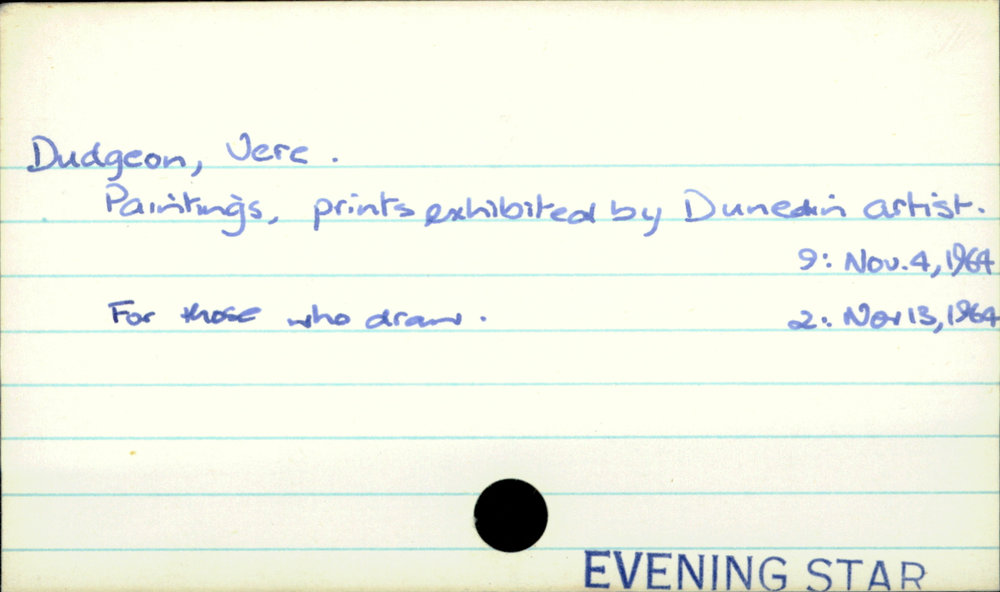 Dudgeon, Vere.
Paintings, prints exhibited by Dunedin artist.
9: Nov. 4, 1964
For those who draw. 2: Nov 13, 1964
EVENING STAR